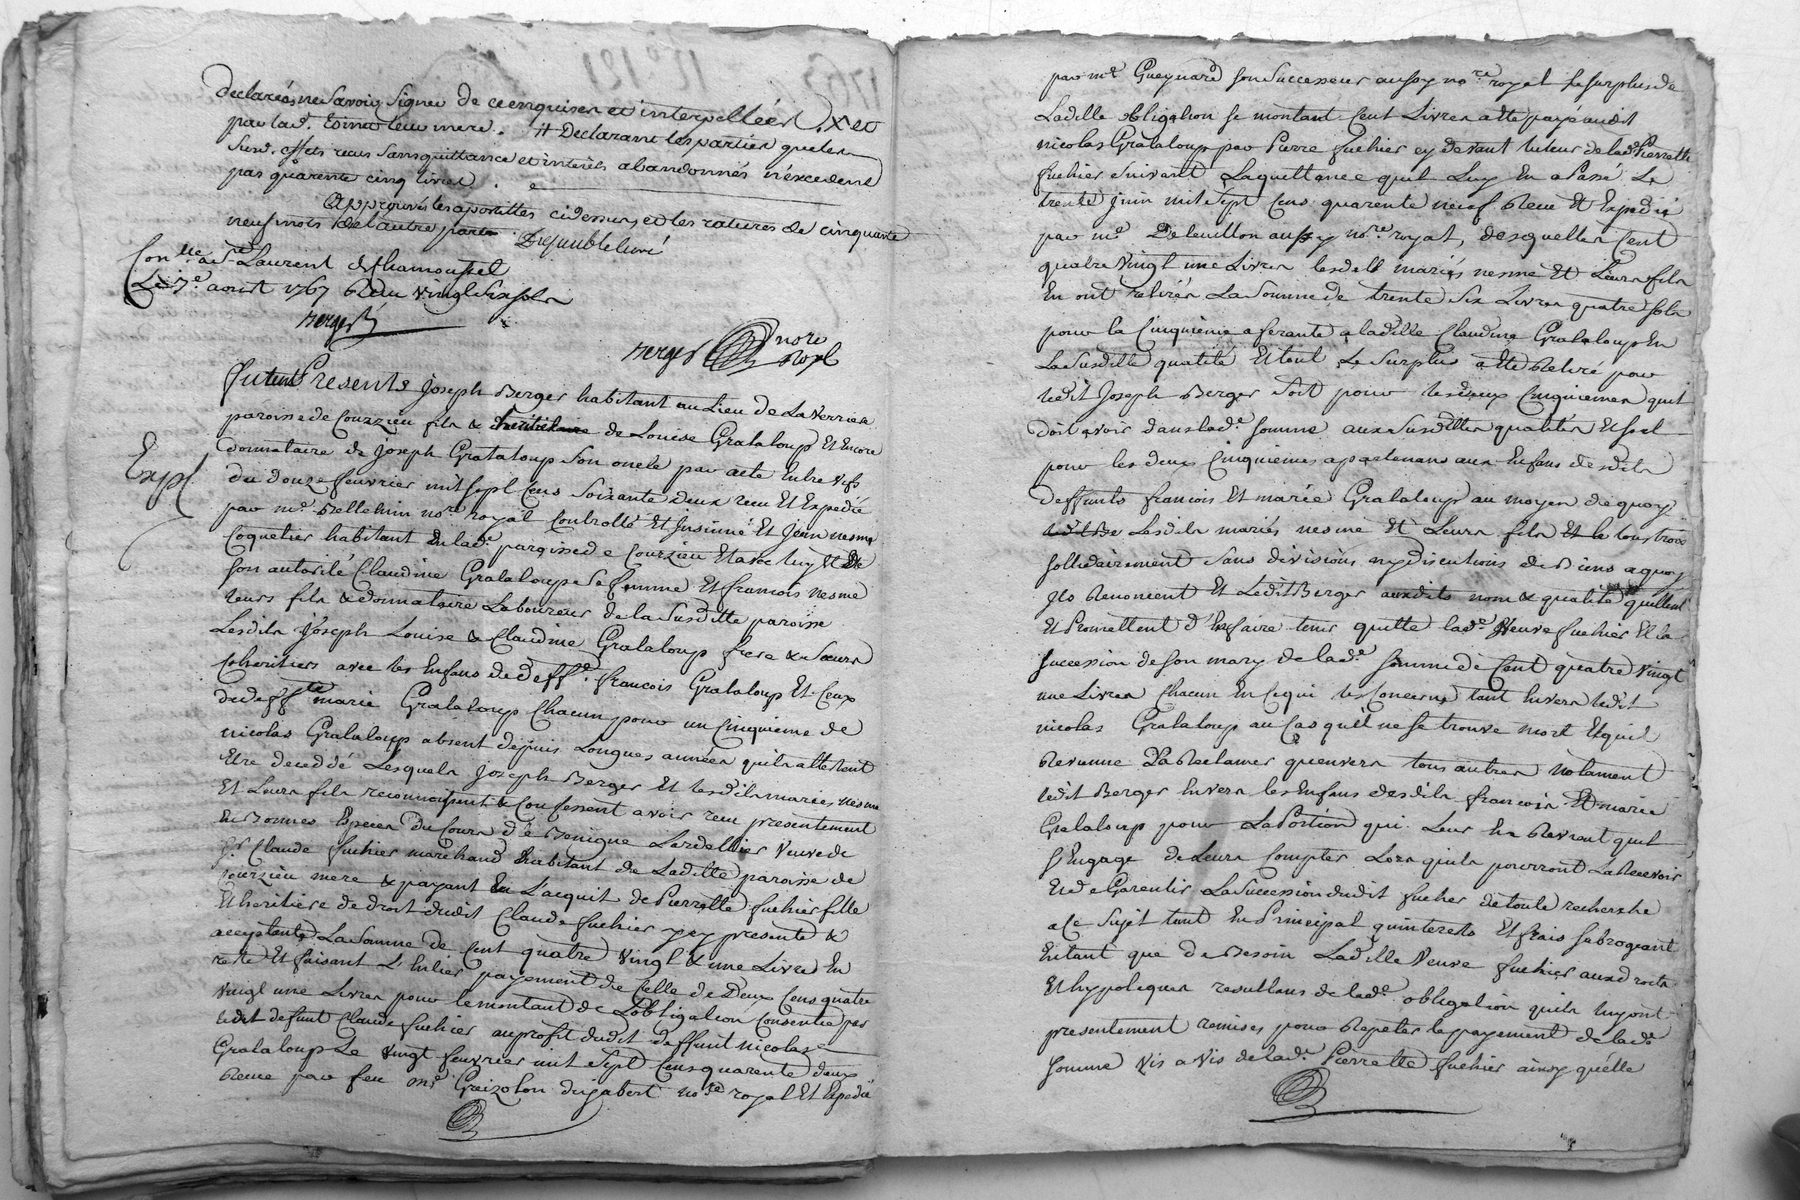 declarés ne Savoir Signer de ce enquises et interpellées . x et
par lad. Esimo leur mere . # Declarant les parties que les
susd. effets reçus Sans quittance et interêts abandonnés n'éxcedent
pas quarente cinq livres .
Approuvés les apostilles cidessus, et les ratures de cinquante
neuf mots de l'autre part
Con.lle a S.t Laurent de Chamousset
Le 7.e aoust 1767 Reçu vingt six sols
Berger
Berger nore Royl
furent Presents Joseph Berger habitant au Lieu de La Verriere
paroisse de Courzieu fils & de Louise Grataloup Et Encore
Expl
donnataire de Joseph Grataloup Son oncle par acte Entre Vifs
du douze feuvrier mil sept Cens Soixante deux recu Et Expedié
par m.e Bellehin no.re royal Controllé Et Insinué Et Jean nesme
Coquetier habitant En lad.e paroisse de Courzieu Et avec luy Et de
Son autorité Claudine Grataloup Sa femme Et francois nesme
leurs fils & donnataire Laboureur de la Susditte paroisse
Lesdits Joseph Louise & Claudine Grataloup frere & Soeurs
Coheritiers avec les Enfans de deff.t francois Grataloup Et Ceux
de deff.te marie Grataloup Chacun pour un Cinquieme de
nicolas Grataloup absent depuis Longues années quils attestent
Etre deceddé Lesquels Joseph Berger Et lesdits maries nesme
Et Leurs fils reconnoissent & Confessent avoir recu presentement
En Bonnes Especes Du Cours d'é Benigne Lardellier Veuve de
S.r Claude fuchier marchand habitant de Laditte paroisse de
Courzieu mere & payant En L'acquit de Pierrette fuchier fille
Et heritiere de droit dudit Claude fuchier ycy presente &
acceptante La Somme de Cent quatre Vingt & une Livre En
reste Et faisant L'Entier payement de Celle de Deux Cens quatre
Vingt une Livres pour le montant de L'obligation Consentie par
ledit defunt Claude fuchier au profit dudit deffunt nicolas
Grataloup Le Vingt feuvrier mil Sept Cens quarente deux
Recue par feu m.e Graizolon Dugabert no.re royal Et Expedié
par m.e Gueynard son Successeur aussy no.re royal Le Surplus de
Laditte obligation Se montant Cent Livres a Eté payé audit
nicolas Grataloup par Pierre fuchier cy devant tuteur de lad.e Pierrette
fuchier Suivant La quittance quil Luy En a Passé Le
trente Juin mil Sept Cens quarente neuf Recue Et Expedié
par m.e Deleuillon aussy no.re royal, desquelles Cent
quatre Vingt une Livres lesdits mariés nesme Et Leurs fils
En ont retirés La Somme de trente Six Livres quatre Sols
pour la Cinquieme aferante a laditte Claudine Grataloup En
La Susditte qualité Et tout Le Surplus a Eté Retiré par
ledit Joseph Berger Soit pour les deux Cinquiemes quil
doit avoir dans lad.e Somme aux Susdittes qualités Et Soit
pour les deux Cinquiemes apartenans aux Enfans desdits
deffunts francois Et marie Grataloup au moyen de quoy
Lesdits mariés nesme Et Leurs fils Et le tous trois
Sollidairement Sans divisions ny discutions de Biens a quoy
Ils Renoncent Et Ledit Berger auxdits nom & qualité quittent
Et Promettent d'En faire tenir quitte lad.e Veuve fuchier Et la
Succession de Son mary de lad.e Somme de Cent quatre Vingt
une Livres Chacun En Cequi les Concerne, tant Envers ledit
nicolas Grataloup au Cas quil ne Se trouve mort Et quil
Revienne La Reclamer quenvers tous autres notament
ledit Berger Envers les Enfans desdits francois Et marie
Grataloup pour La Portion qui Leur En Revient quil
S'Engage de Leurs Compter Lors quils pourront La Recevoir
Et de Garentir La Succession dudit fucher de toute recherche
a Ce Sujet tant En Principal quinterets Et frais Subrogeant
Entant que de Besoin Laditte Veuve fuchier aux droits
Et hypoteques resultans de lad.e obligation quils luy ont
presentement remises pour Repeter le payement de lad.e
Somme Vis a Vis de lad.e Pierrette fuchier ainsy quélle